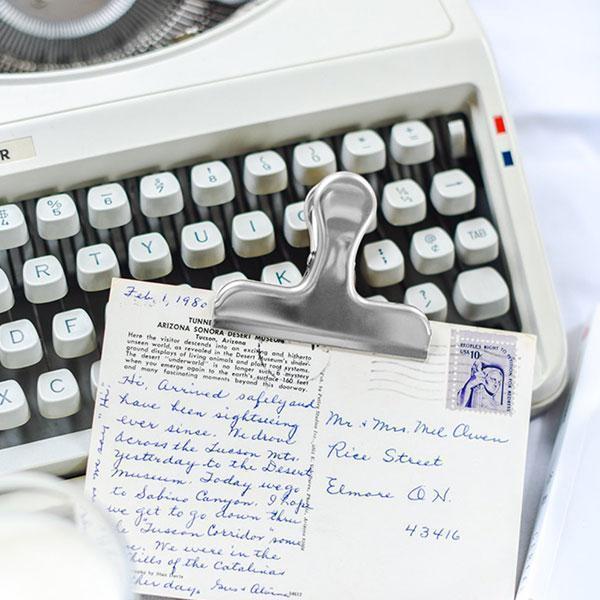 R
$ 4
% 5
_ 6
& 7
' 8
( 9
)
*
+
=
¼
½
R T Y U I
K
:
;
@
¢
TAB
D F
?
/
X C
Feb. 1, 1980
TUNNE
ARIZONA SONORA DESERT MUSEUM
Tucson, Arizona
Here the visitor descends into an exciting and hitherto
unseen world, as revealed in the Desert Museum's under-
ground displays of living animals and plant root systems.
The desert "underworld" is no longer such a mystery
when you emerge again to the earth's surface 160 feet
and many fascinating moments beyond this doorway.
Hi, Arrived safely and
have been sightseeing
ever since. We drove
across the Tucson Mts.
yesterday to the Desert
Museum. Today we go
to Sabino Canyon. I hope
we get to go down thru
"Tucson Corridor" some
We were in the
hills of the Catalinas
her day. Gus & Alvina
we say "Hi"
PEOPLES RIGHT TO PETITION FOR REDRESS
USA 10c
Mr. & Mrs. Mel Owen
Rice Street
Elmore OH.
43416